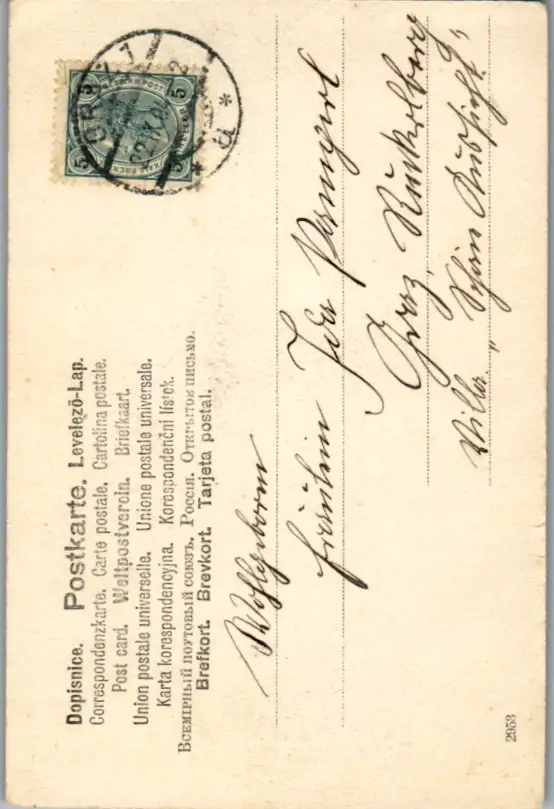 Dopisnice. Postkarte. Levelező-Lap.
Correspondenzkarte. Carte postale. Cartolina postale.
Post card. Weltpostverein. Briefkaart.
Union postale universelle. Unione postale universale.
Karta korespondencyjna. Korespondenční lístek.
Всемірный почтовый союзъ. Россия. Открытое письмо.
Brefkort. Brevkort. Tarjeta postal.
5 5
5 5
Wohlgeboren
Fräulein Ida
Graz, Ruckerlberg
Villa „Schöne Aussicht"
2953